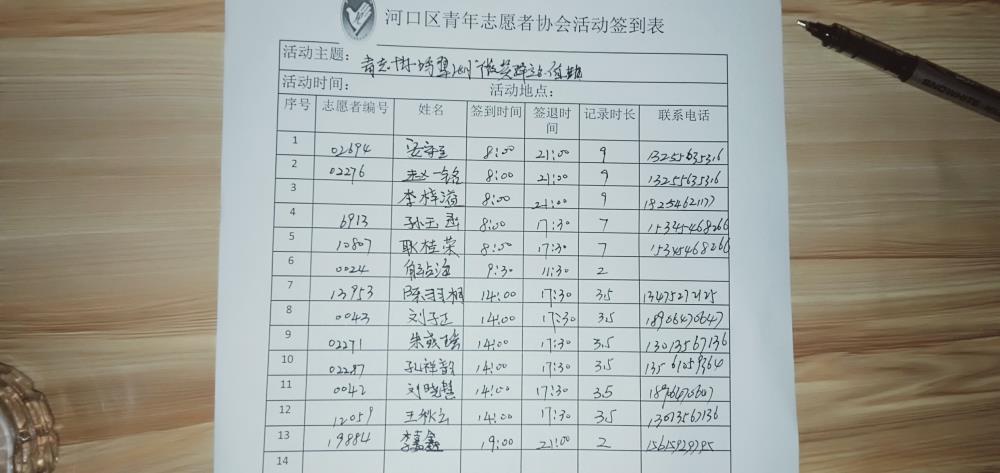 河口区青年志愿者协会活动签到表
活动主题：
活动时间： 活动地点：
序号 志愿者编号 姓名 签到时间 签退时间 记录时长 联系电话
1 02694 8:00 21:00 9 13255635316
2 02276 赵一铭 8:00 21:00 9 13255635316
3 李梓涵 8:00 21:00 9 18254621177
4 6913 孙玉 8:00 17:30 7 15345468266
5 10807 耿桂荣 8:00 17:30 7 15345468266
6 0024 9:30 11:30 2
7 13953 陈 14:00 17:30 3.5 13475272125
8 0043 刘子正 14:00 17:30 3.5 18906470647
9 02271 朱 14:00 17:30 3.5 13013567136
10 02287 孔祥 14:00 17:30 3.5
11 0042 刘晓慧 14:00 17:30 3.5
12 12059 王秋云 14:00 17:30 3.5
13 19884 李嘉鑫 19:00 21:00 2
14